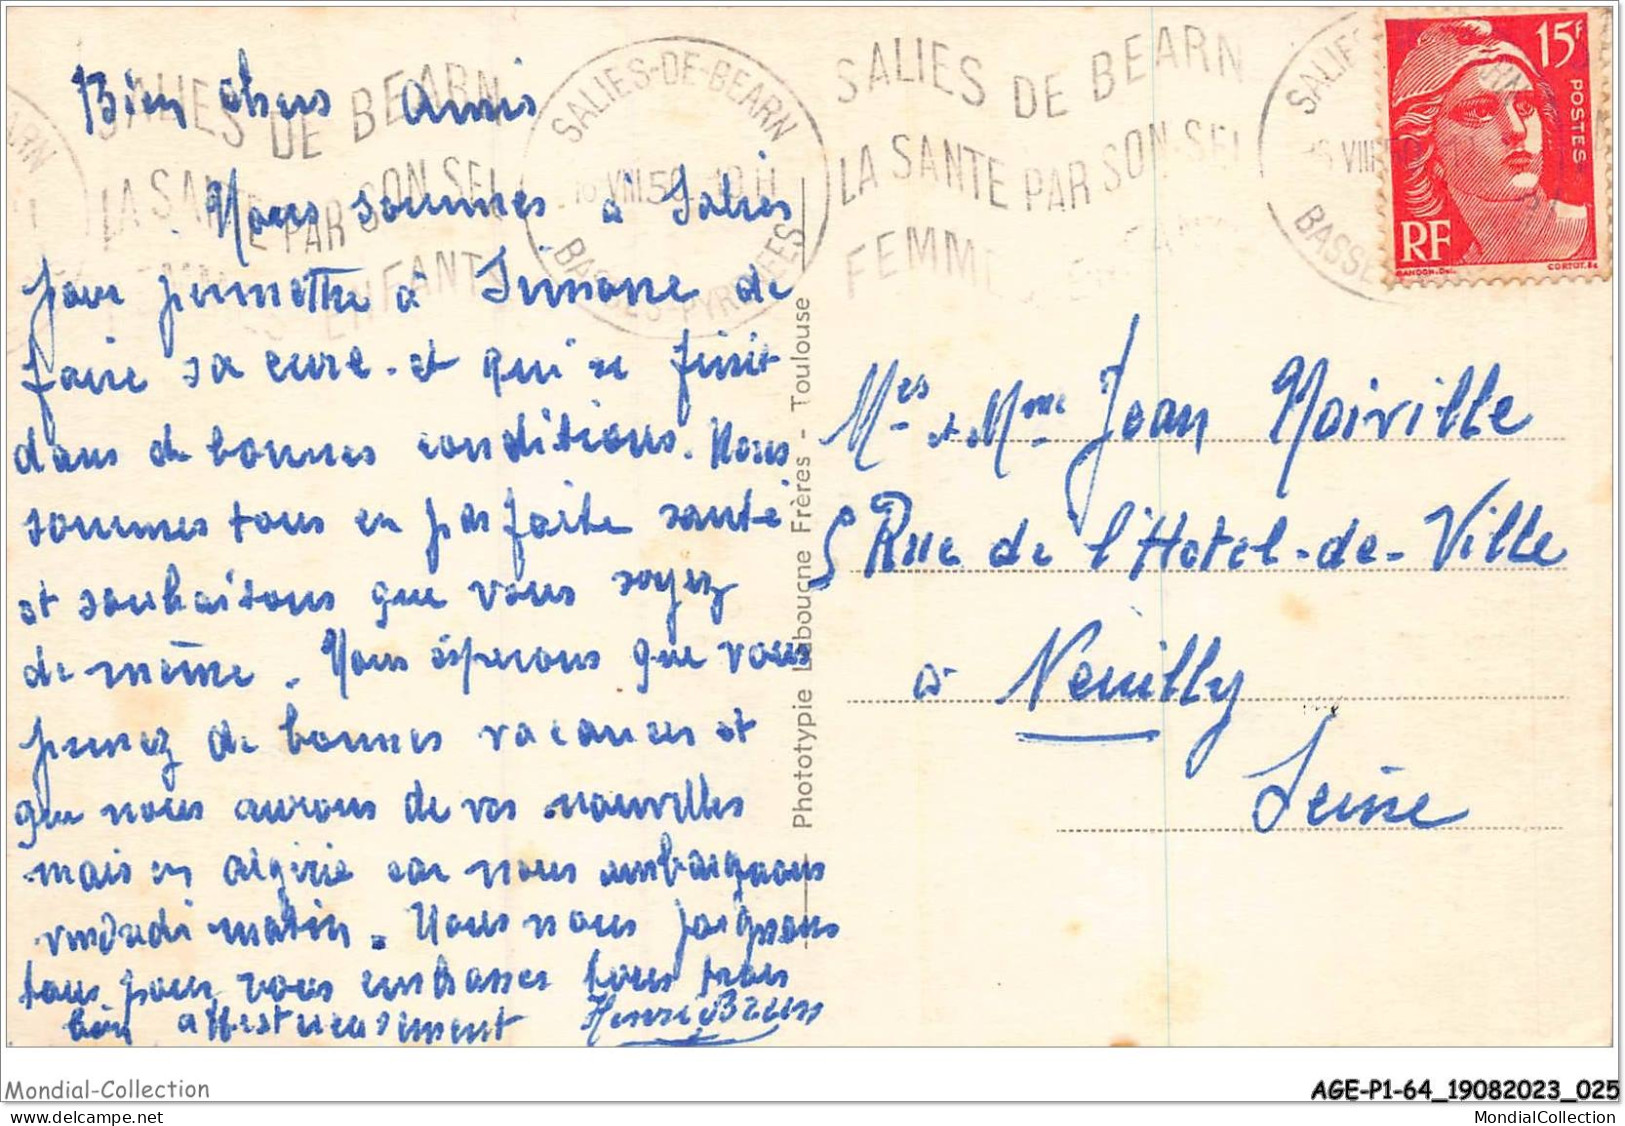 Bien chers amis
Nous sommes à Salies
pour permettre à Simone de
faire sa cure et qui se finit
dans de bonnes conditions. Nous
sommes tous en parfaite santé
et souhaitons que vous soyez
de même. Nous espérons que vous
prenez de bonnes vacances et
que nous aurons de vos nouvelles
mais en Algérie car nous embarquons
vendredi matin. Nous nous joignons
tous pour vous embrasser tous trois
bien affectueusement Henri
SALIES DE BEARN
LA SANTE PAR SON SEL
ENFANTS
SALIES-DE-BEARN
BASSES-PYRENEES
SALIES DE BEARN
LA SANTE PAR SON SEL
FEMMES
15F
POSTES
RF
GANDON
CORTOT
Phototypie Labouche Frères - Toulouse
Mrs et Mme Jean Noiville
5 Rue de l'Hotel-de-Ville
à Neuilly
Seine
Mondial-Collection
AGE-P1-64_19082023_025
www.delcampe.net
MondialCollection